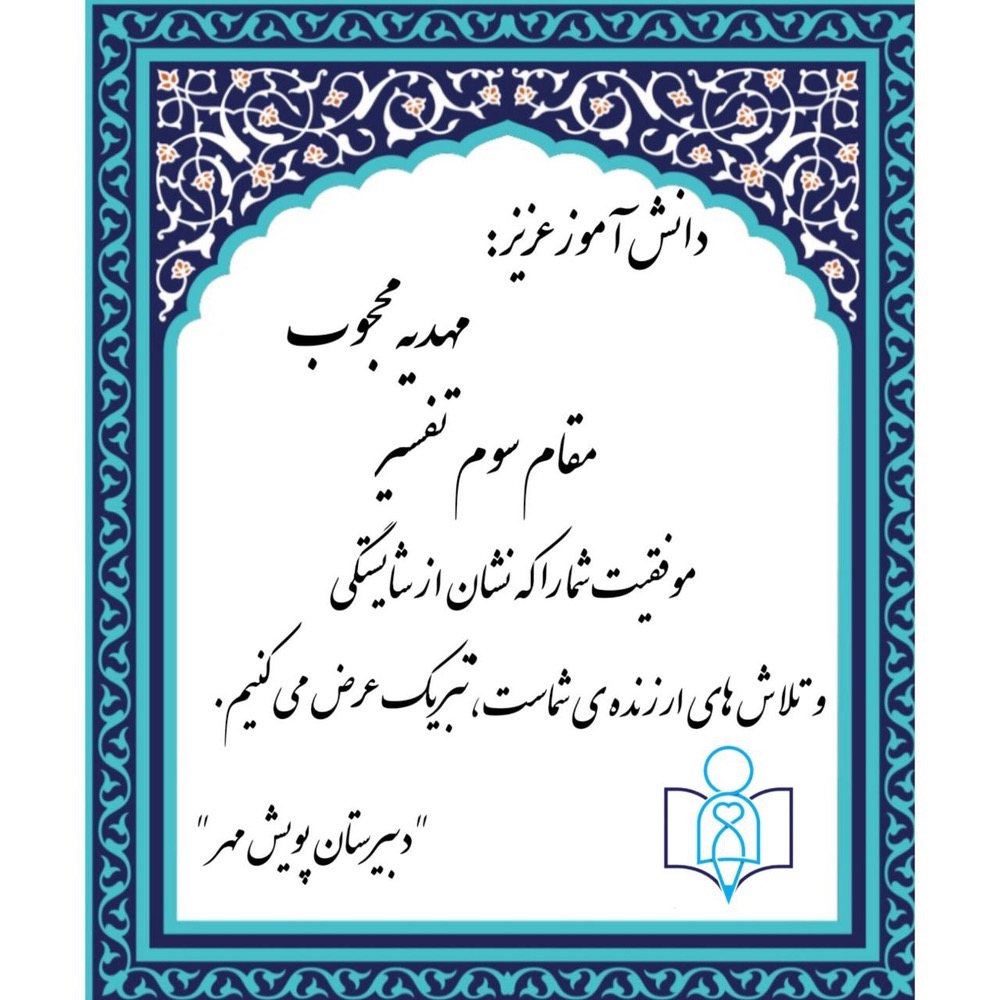 دانش آموز عزیز:
مهدیه محجوب
مقام سوم تفسیر
موفقیت شما را که نشان از شایستگی
و تلاش های ارزنده ی شماست، تبریک عرض می کنیم.
"دبیرستان پویش مهر"